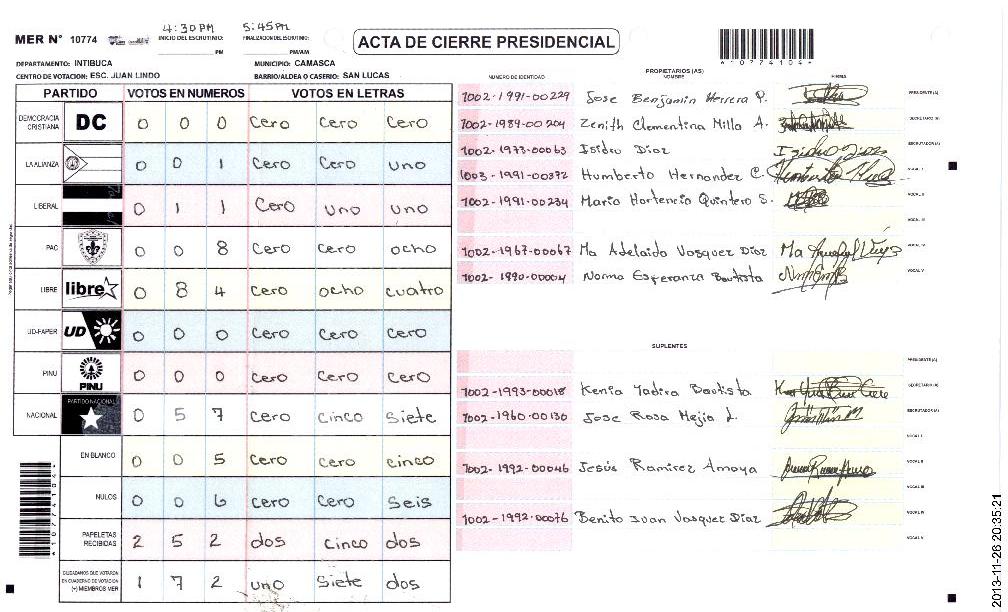 4:30 PM 5:45 PM
MER N° 10774 INICIO DEL ESCRUTINIO: PM FINALIZACION DEL ESCRUTINIO: PM/AM
ACTA DE CIERRE PRESIDENCIAL
*10774104*
DEPARTAMENTO: INTIBUCA MUNICIPIO: CAMASCA
CENTRO DE VOTACION: ESC. JUAN LINDO BARRIO/ALDEA O CASERIO: SAN LUCAS
PARTIDO VOTOS EN NUMEROS VOTOS EN LETRAS
DEMOCRACIA CRISTIANA DC 0 0 0 Cero Cero Cero
LA ALIANZA 0 0 1 Cero Cero uno
LIBERAL 0 1 1 Cero uno uno
PAC 0 0 8 Cero Cero ocho
LIBRE libre 0 8 4 Cero ocho cuatro
UD-FAPER UD 0 0 0 Cero Cero Cero
PINU PINU 0 0 0 Cero Cero Cero
NACIONAL PARTIDO NACIONAL 0 5 7 Cero Cinco Siete
EN BLANCO 0 0 5 Cero Cero Cinco
NULOS 0 0 6 Cero Cero Seis
PAPELETAS RECIBIDAS 2 5 2 dos Cinco dos
CIUDADANOS QUE VOTARON EN CUADERNO DE VOTACION (+) MIEMBROS MER 1 7 2 uno Siete dos
*10774104*
PROPIETARIOS (AS)
NUMERO DE IDENTIDAD NOMBRE FIRMA
1002-1991-00229 Jose Benjamin Herrera P. PRESIDENTE(A)
1002-1989-00204 Zenith Clementina Milla A. SECRETARIO(A)
1002-1973-00063 Isidro Diaz Isidro Diaz ESCRUTADOR(A)
1003-1991-00372 Humberto Hernandez C. VOCAL I
1002-1991-00234 Maria Hortencia Quintero S. VOCAL II
VOCAL III
1002-1967-00067 Ma Adelaida Vasquez Diaz VOCAL IV
1002-1990-00004 Norma Esperanza Bautista VOCAL V
SUPLENTES
PRESIDENTE(A)
1002-1993-00018 Kenia Yadira Bautista SECRETARIO(A)
1002-1960-00130 Jose Rosa Mejia L. ESCRUTADOR(A)
VOCAL I
1002-1992-00046 Jesús Ramirez Amaya VOCAL II
VOCAL III
1002-1992-00076 Benito Ivan Vasquez Diaz VOCAL IV
VOCAL V
2013-11-26 20:35:21